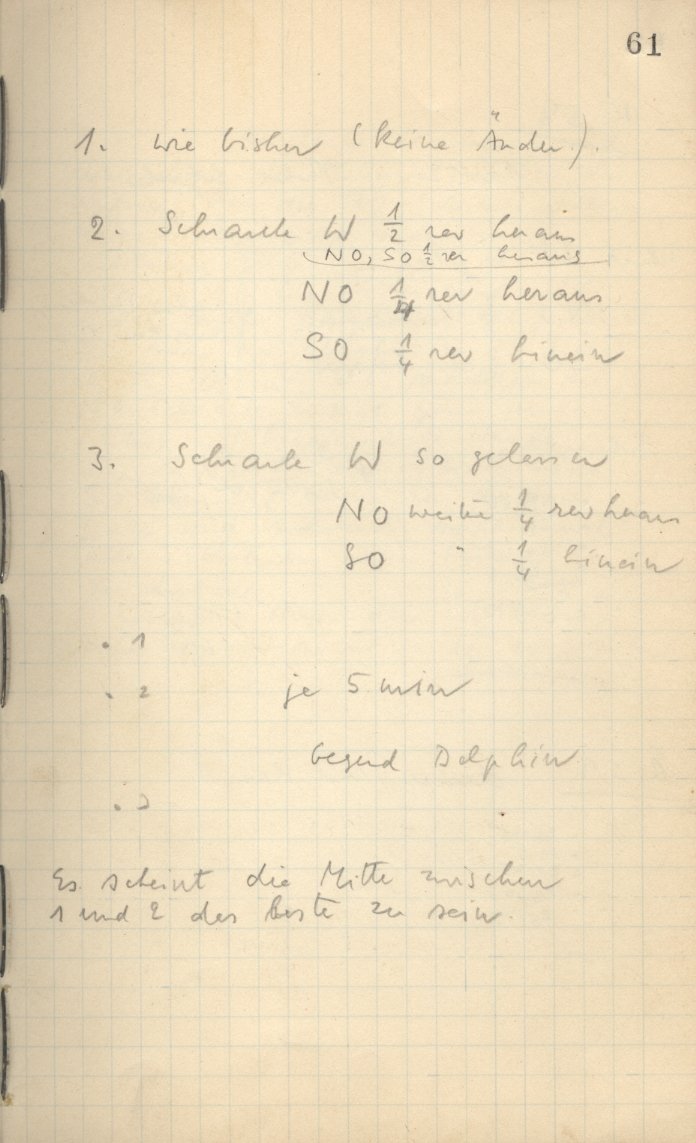 61
1. wie bisher (keine Änder.).
2. Schraube W 1/2 rev heraus
NO, SO 1/2 rev heraus
NO 1/4 rev heraus
SO 1/4 rev hinein
3. Schraube W so gelassen
NO weiter 1/4 rev heraus
SO " 1/4 hinein
. 1
. 2 je 5 min
Gegend Delphin
. 3
Es scheint die Mitte zwischen
1 und 2 das Beste zu sein.